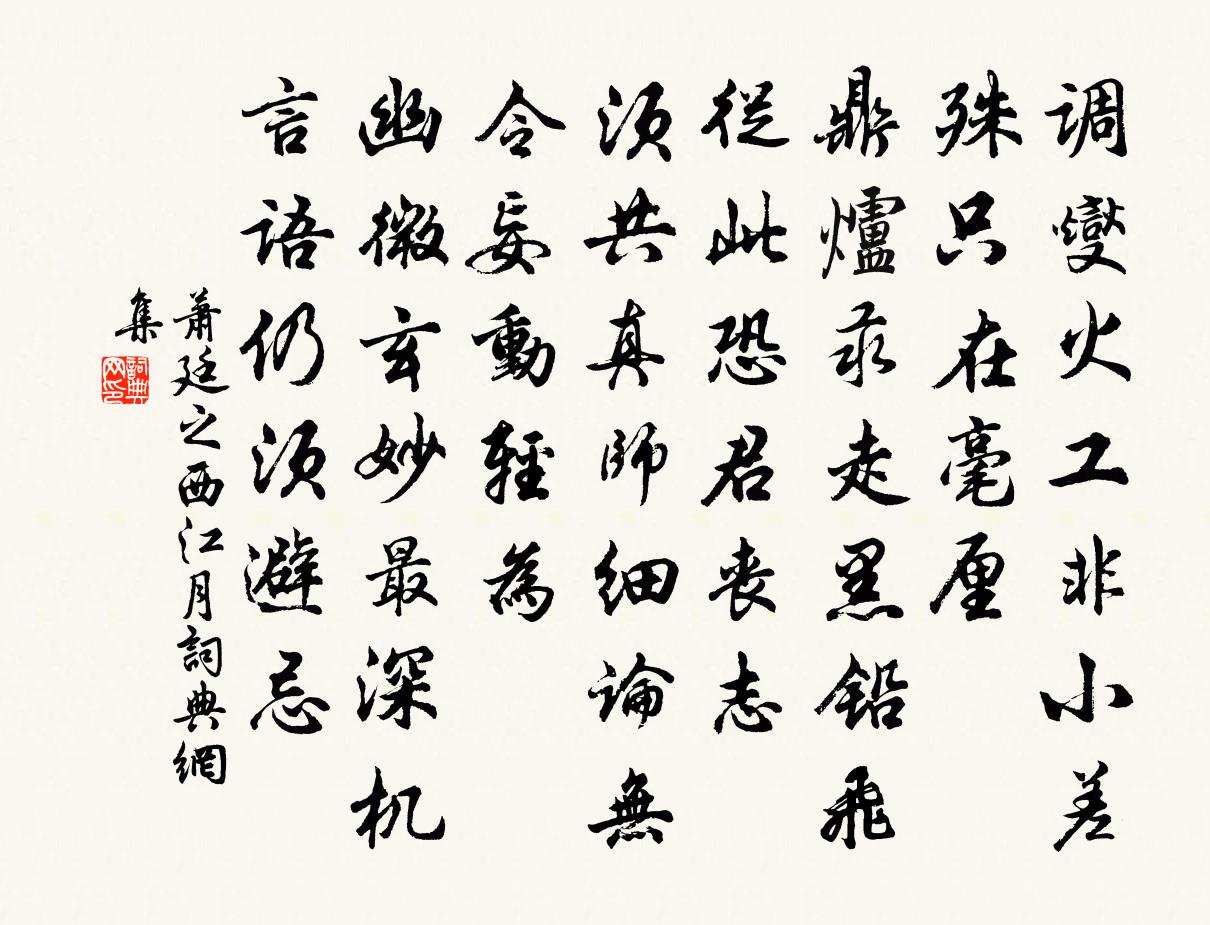 调燮火工非小差
殊只在毫厘
鼎爐汞走黑铅飛
從此恐君丧志
须共真師细論無
令妄動輕為
幽微玄妙最深机
言語仍须避忌
蕭廷之西江月詞典網
集
詞典网印